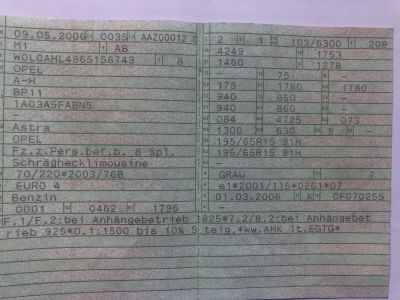 09.05.2006 0035 AAZ00012 0
M1 AB
W0L0AHL4865158743 8
OPEL
A-H
BP11
1A03A5FABN5
-
Astra
OPEL
Fz.z.Pers.bef.b. 8 Spl.
Schräghecklimousine
70/220*2003/76B
EURO 4
Benzin
0001 0462 1796
2 1 103/6300 208
4249 1753
1460 1278
- 75 -
175 1780 1780
940 860 -
940 860 -
084 4725 073
1300 630 5 -
195/65R15 91H
195/65R15 91H
-
GRAU 7
e1*2001/116*0261*07
01.03.2006 K OF070255
F.1/F.2:bei Anhängebetrieb 1825*7.2/8.2:bei Anhängebet
rieb 925*O.1:1500 bis 10% Steig.*ww.AHK lt.EGTG*